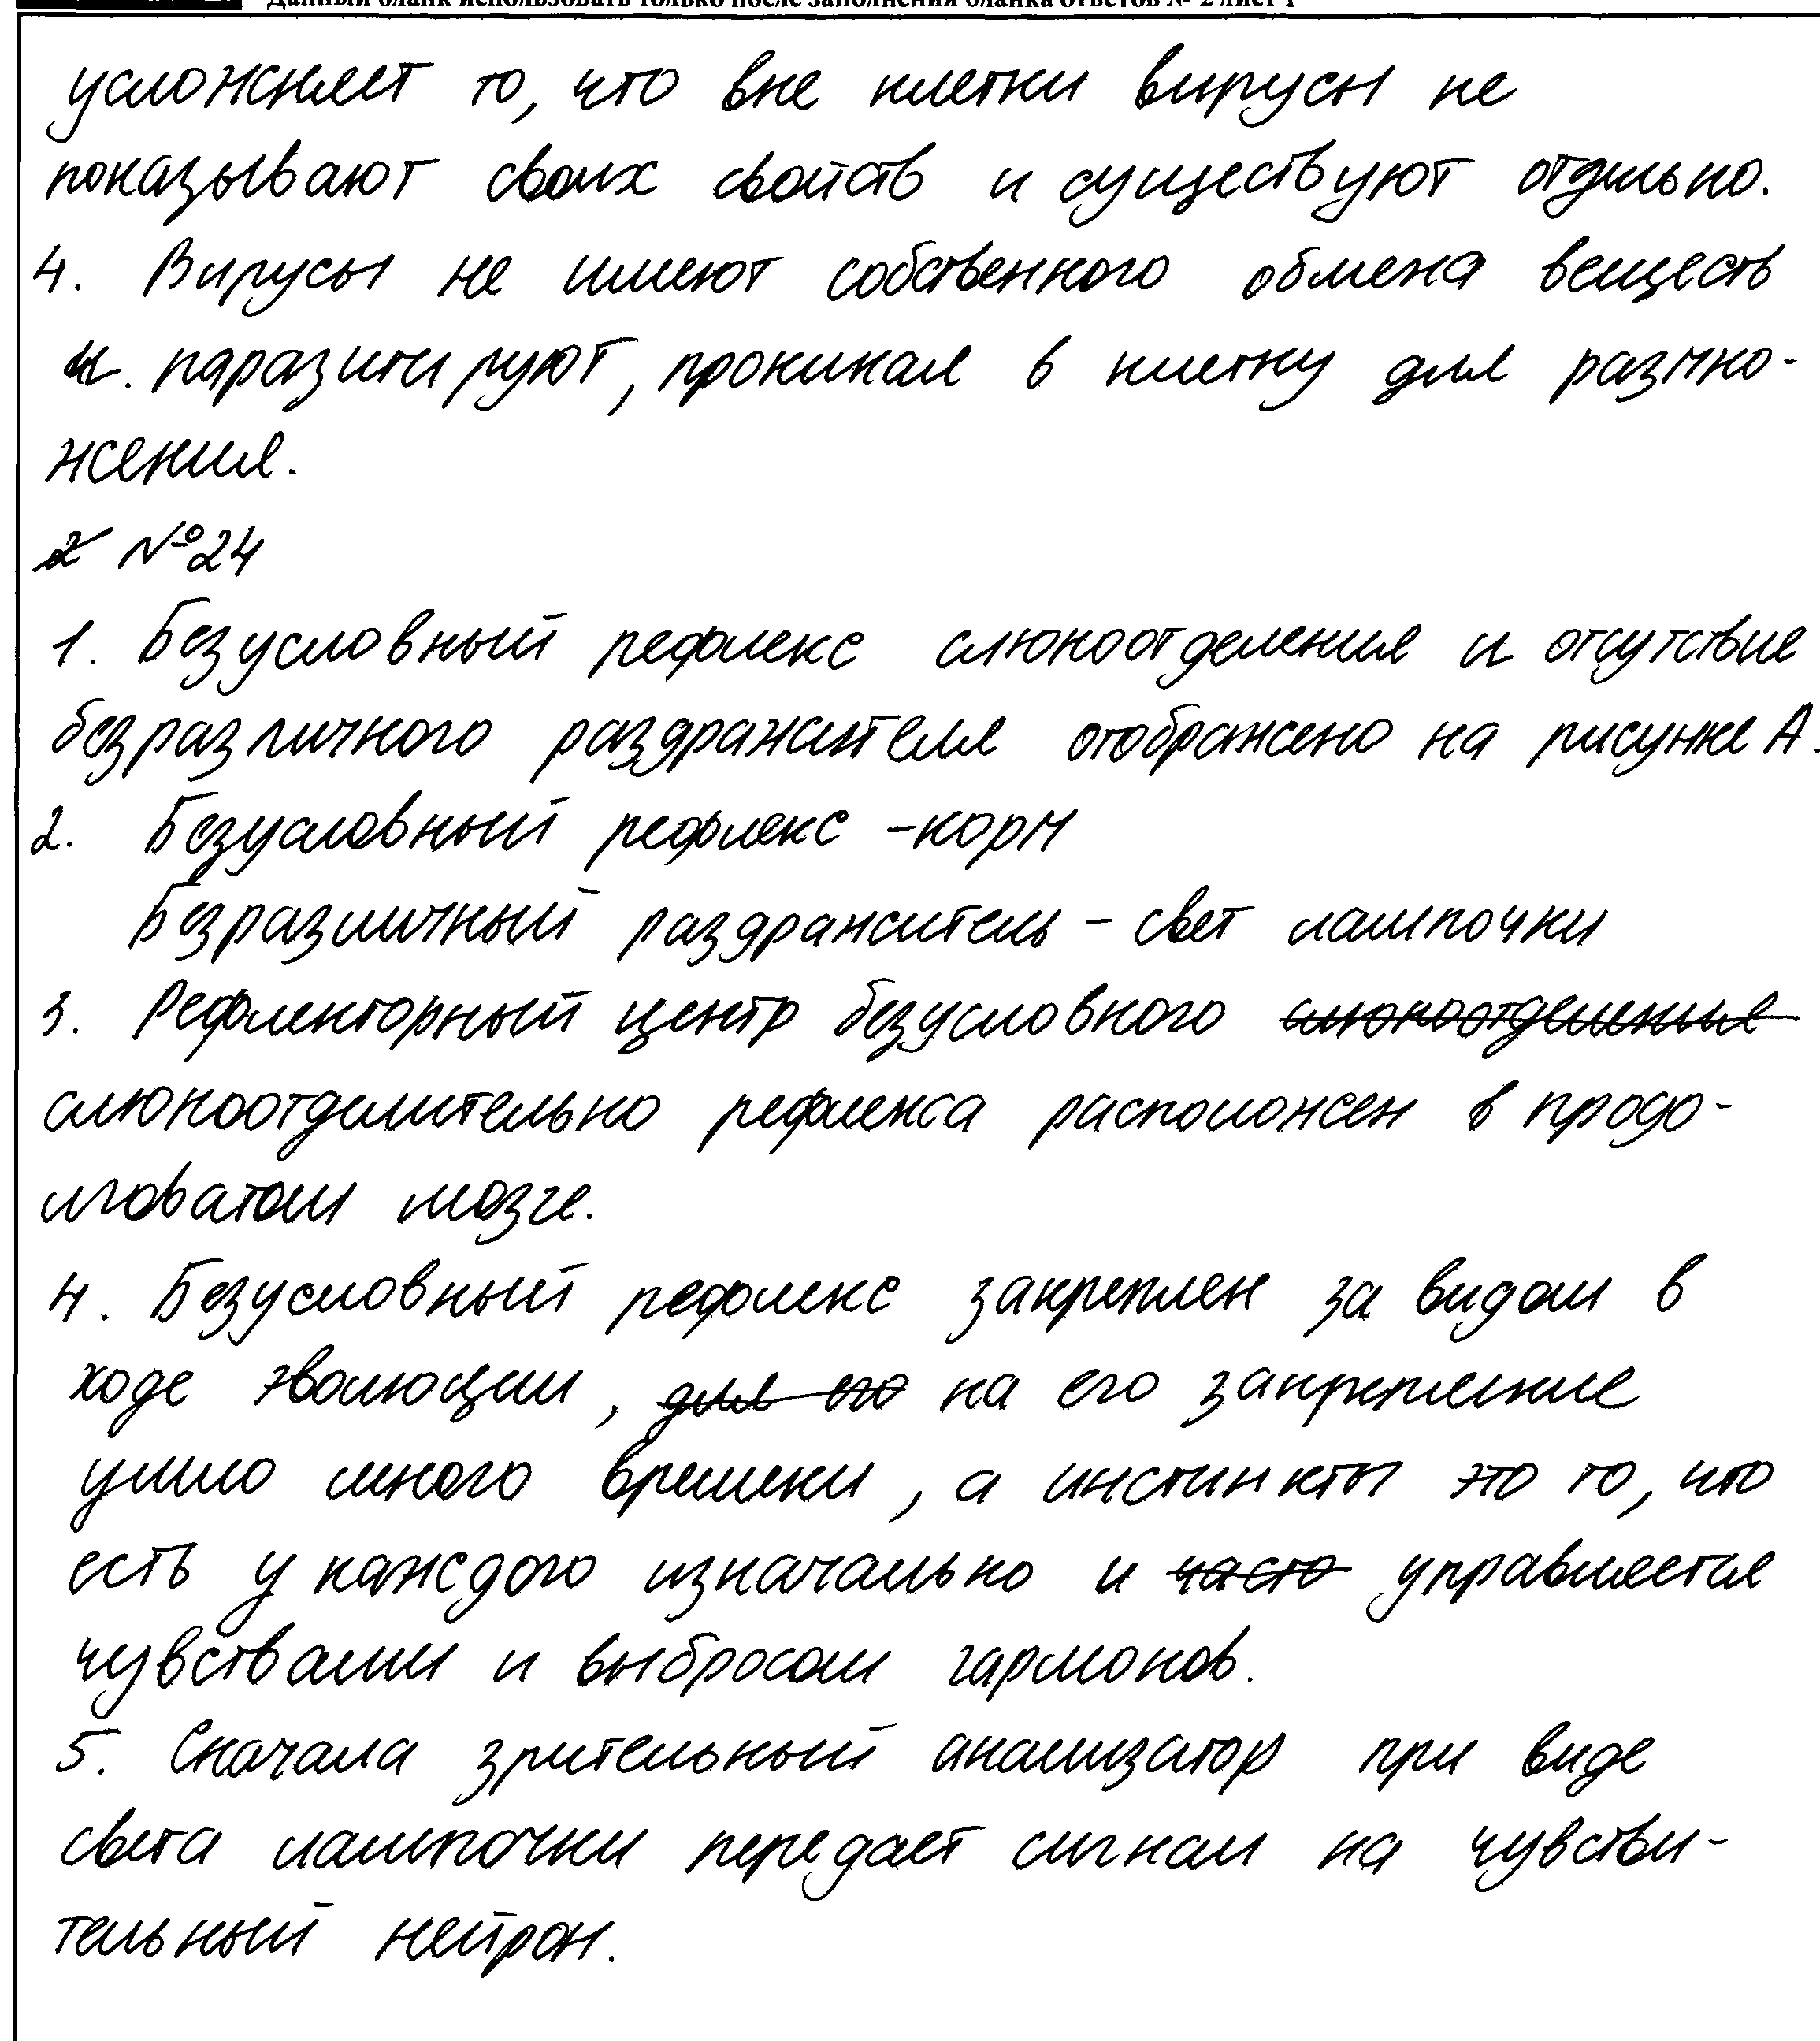 Данный бланк использовать только после заполнения бланка ответов № 2 лист 1
усложняет то, что вне клетки вирусы не
показывают своих свойств и существуют отдельно.
4. Вирусы не имеют собственного обмена веществ
и. паразитируют, проникая в клетку для размно-
жения.
2 №24
1. Безусловный рефлекс слюноотделения и отсутствие
безразличного раздражителя отображено на рисунке А.
2. Безусловный рефлекс - корм
Безразличный раздражитель - свет лампочки
3. Рефлекторный центр безусловного слюноотделения
слюноотделительно рефлекса расположен в продо-
лговатом мозге.
4. Безусловный рефлекс закреплен за видом в
ходе эволюции, для его на его закрепление
ушло много времени, а инстинкты это то, что
есть у каждого изначально и часто управляется
чувствами и выбросом гармонов.
5. Сначала зрительный анализатор при виде
света лампочки передает сигнал на чувстви-
тельный нейрон.